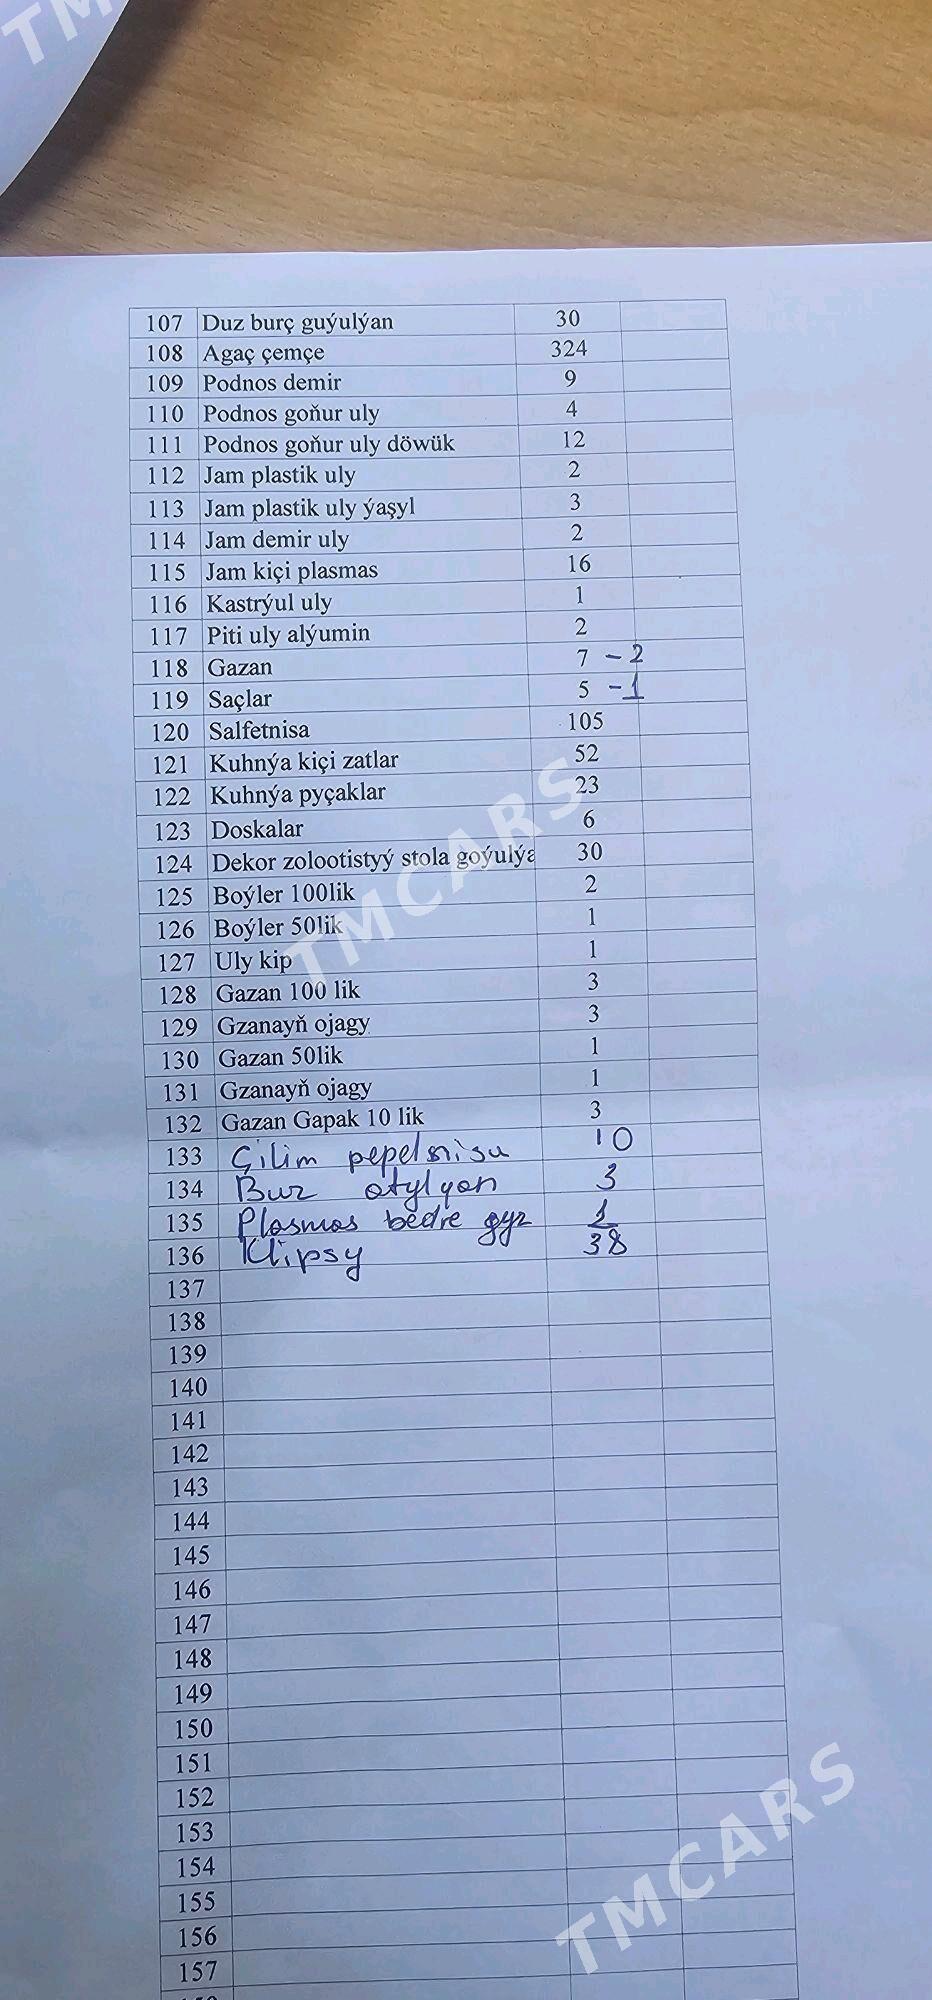 TM
107 Duz burç guýulýan 30
108 Agaç çemçe 324
109 Podnos demir 9
110 Podnos goňur uly 4
111 Podnos goňur uly döwük 12
112 Jam plastik uly 2
113 Jam plastik uly ýaşyl 3
114 Jam demir uly 2
115 Jam kiçi plasmas 16
116 Kastrýul uly 1
117 Piti uly alýumin 2
118 Gazan 7 - 2
119 Saçlar 5 - 1
120 Salfetnisa 105
121 Kuhnýa kiçi zatlar 52
122 Kuhnýa pyçaklar 23
123 Doskalar 6
124 Dekor zolootistyý stola goýulýa 30
125 Boýler 100lik 2
126 Boýler 50lik 1
127 Uly kip 1
128 Gazan 100 lik 3
129 Gzanayň ojagy 3
130 Gazan 50lik 1
131 Gzanayň ojagy 1
132 Gazan Gapak 10 lik 3
133 Çilim 10
134 Buz atylyan 3
135 Plasmas bedre gyz 1
136 Klipsy 38
137
138
139
140
141
142
143
144
145
146
147
148
149
150
151
152
153
154
155
156
157
TMCARS
TMCARS